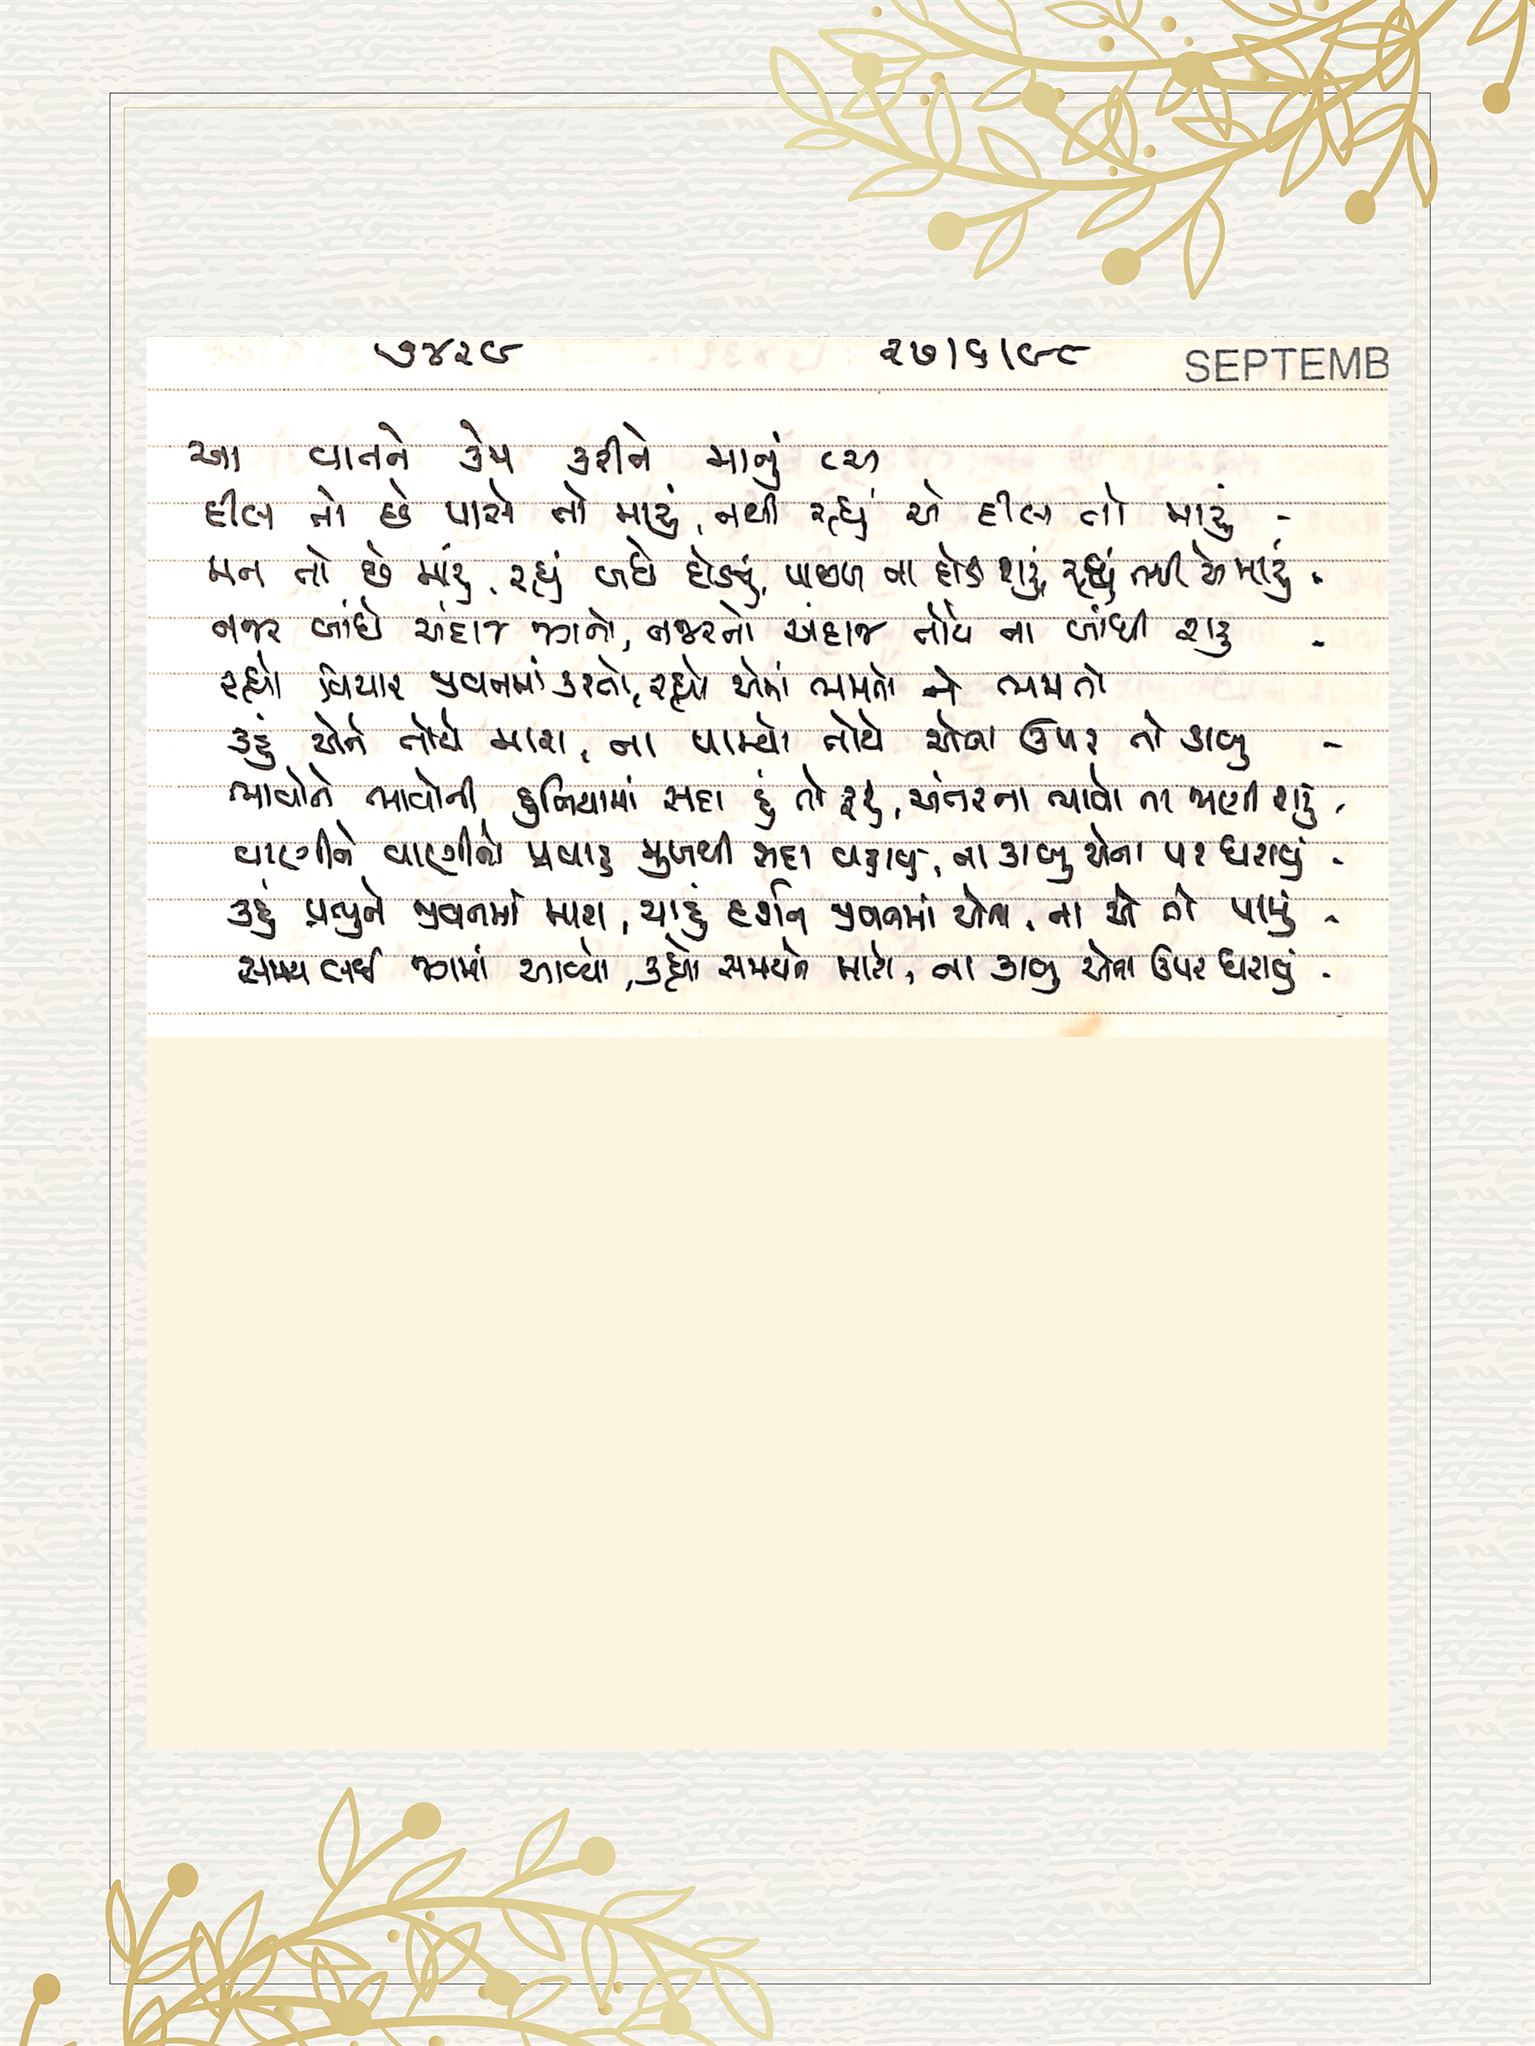 ૭૪૨૯ ૨૭/૬/૯૮ SEPTEMB
આ વાતને કેમ કરીને માનું
દીલ તો છે પાસે તો મારું, નથી રહ્યું એ દીલ તો મારું -
મન તો છે મારું, રહ્યું બધે દોડતું, પાછળ ના દોડી શકું, રહ્યું નથી એ મારું -
નજર બાંધે અંદાજ જગનો, નજરનો અંદાજ તોયે ના બાંધી શકું -
રહ્યો વિચાર જીવનમાં કરતો, રહ્યો એમાં ભમતો ને ભમતો
કહું એને તોયે મારા, ના પામ્યો તોયે એના ઉપર તો કાબુ -
ભાવોને ભાવોની દુનિયામાં સદા હું તો ફરું, અંતરના ભાવો ના જાણી શકું -
વાણીને વાણીનો પ્રવાહ મુખથી સદા વહાવું, ના કાબુ એના પર ધરાવું -
કહું પ્રભુને જીવનમાં મારા, ચાહું દર્શન જીવનમાં એના, ના એ તો પામું -
સમય લઈ જગમાં આવ્યો, કહ્યો સમયને મારો, ના કાબુ એના ઉપર ધરાવું -